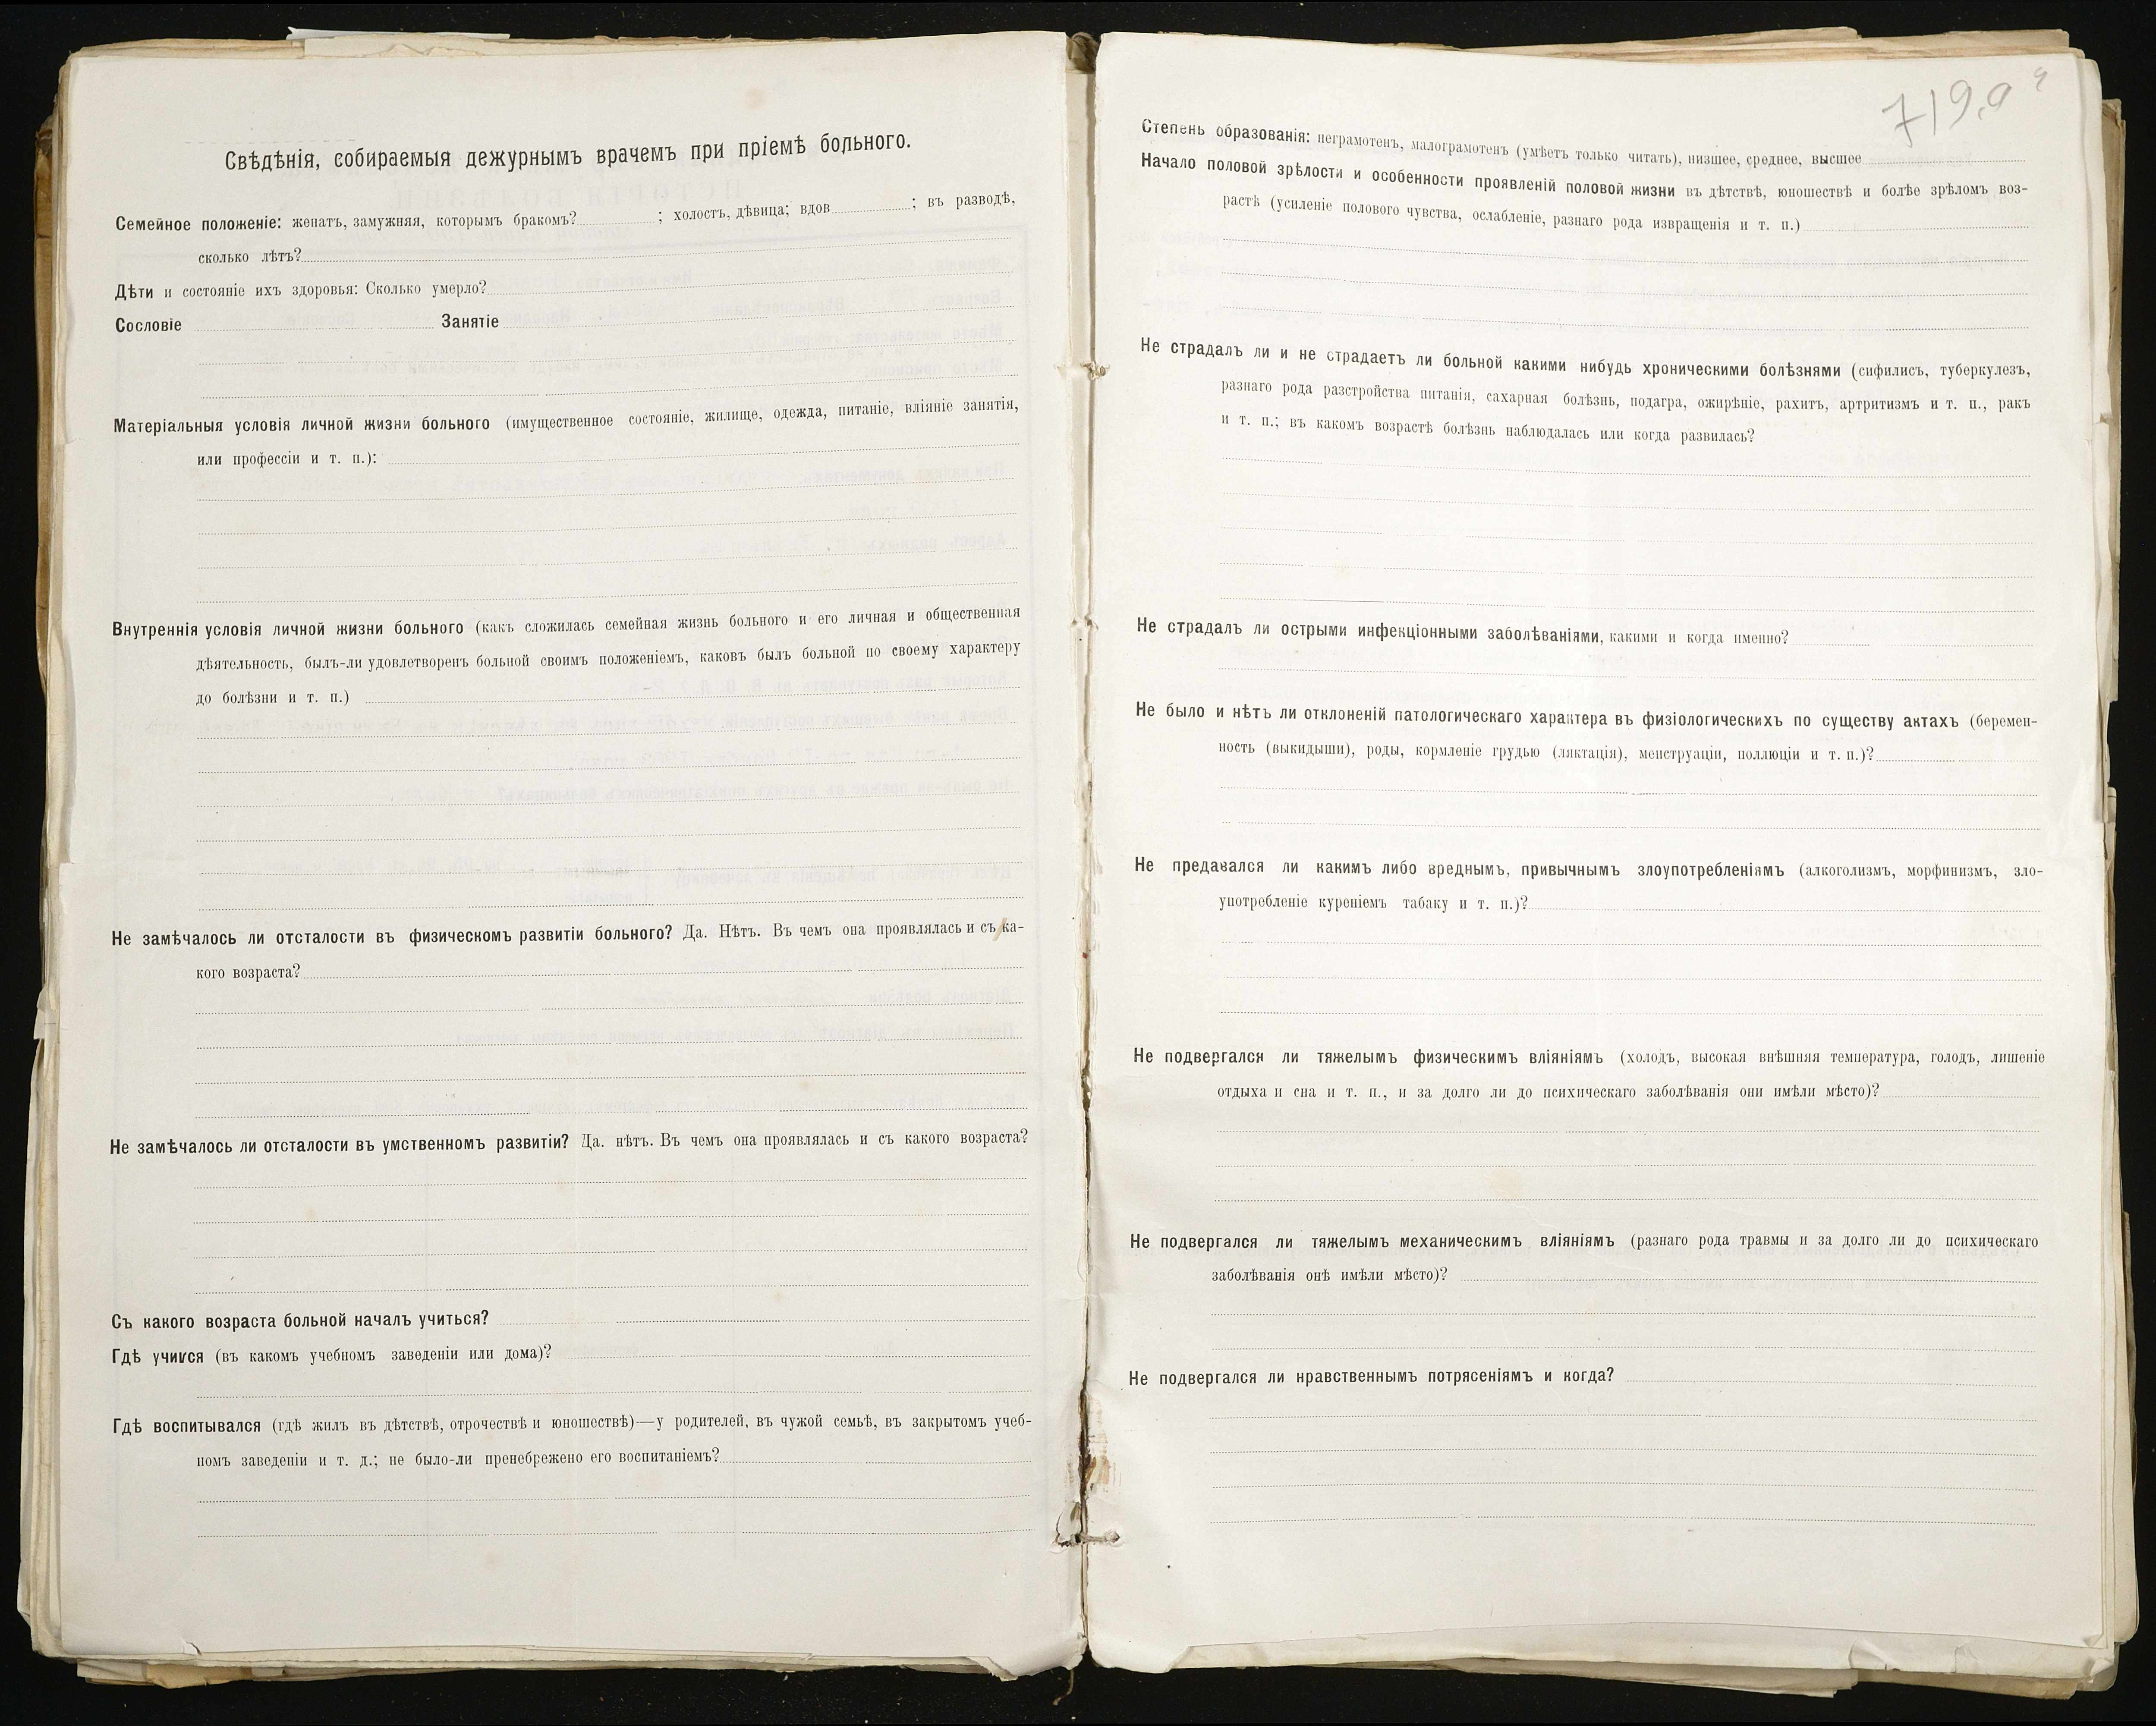 Свѣдѣнія, собираемыя дежурнымъ врачемъ при пріемѣ больного.
Семейное положеніе: женатъ, замужняя, которымъ бракомъ? ; холостъ, дѣвица; вдов ; въ разводѣ,
сколько лѣтъ?
Дѣти и состояніе ихъ здоровья: Сколько умерло?
Сословіе Занятіе
Матеріальныя условія личной жизни больного (имущественное состояніе, жилище, одежда, питаніе, вліяніе занятія,
или профессіи и т. п.):
Внутреннія условія личной жизни больного (какъ сложилась семейная жизнь больного и его личная и общественная
дѣятельность, былъ-ли удовлетворенъ больной своимъ положеніемъ, каковъ былъ больной по своему характеру
до болѣзни и т. п.)
Не замѣчалось ли отсталости въ физическомъ развитіи больного? Да. Нѣтъ. Въ чемъ она проявлялась и съ ка-
кого возраста?
Не замѣчалось ли отсталости въ умственномъ развитіи? Да. нѣтъ. Въ чемъ она проявлялась и съ какого возраста?
Съ какого возраста больной началъ учиться?
Гдѣ учился (въ какомъ учебномъ заведеніи или дома)?
Гдѣ воспитывался (гдѣ жилъ въ дѣтствѣ, отрочествѣ и юношествѣ)—у родителей, въ чужой семьѣ, въ закрытомъ учеб-
номъ заведеніи и т. д.; не было-ли пренебрежено его воспитаніемъ?
719.а
Степень образованія: неграмотенъ, малограмотенъ (умѣетъ только читать), низшее, среднее, высшее
Начало половой зрѣлости и особенности проявленій половой жизни въ дѣтствѣ, юношествѣ и болѣе зрѣломъ воз-
растѣ (усиленіе полового чувства, ослабленіе, разнаго рода извращенія и т. п.)
Не страдалъ ли и не страдаетъ ли больной какими нибудь хроническими болѣзнями (сифилисъ, туберкулезъ,
разнаго рода разстройства питанія, сахарная болѣзнь, подагра, ожирѣніе, рахитъ, артритизмъ и т. п., ракъ
и т. п.; въ какомъ возрастѣ болѣзнь наблюдалась или когда развилась?
Не страдалъ ли острыми инфекціонными заболѣваніями, какими и когда именно?
Не было и нѣтъ ли отклоненій патологическаго характера въ физіологическихъ по существу актахъ (беремен-
ность (выкидыши), роды, кормленіе грудью (ляктація), менструаціи, поллюціи и т. п.)?
Не предавался ли какимъ либо вреднымъ, привычнымъ злоупотребленіямъ (алкоголизмъ, морфинизмъ, зло-
употребленіе куреніемъ табаку и т. п.)?
Не подвергался ли тяжелымъ физическимъ вліяніямъ (холодъ, высокая внѣшняя температура, голодъ, лишеніе
отдыха и сна и т. п., и за долго ли до психическаго заболѣванія они имѣли мѣсто)?
Не подвергался ли тяжелымъ механическимъ вліяніямъ (разнаго рода травмы и за долго ли до психическаго
заболѣванія онѣ имѣли мѣсто)?
Не подвергался ли нравственнымъ потрясеніямъ и когда?